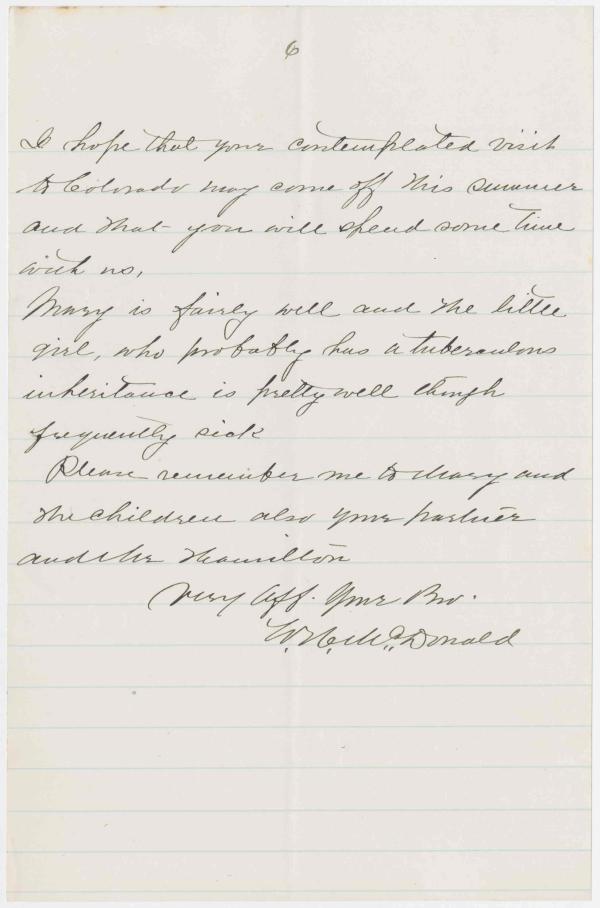 6
I hope that your contemplated visit
to Colorado may come off this summer
and that you will spend some time
with us,
Mary is fairly well and the little
girl, who probably has a tuberculous
inheritance is pretty well though
frequently sick
Please remember me to Mary and
the children also your partner
and Mr Hamilton
Very Aff. Your Bro.
W. H. McDonald